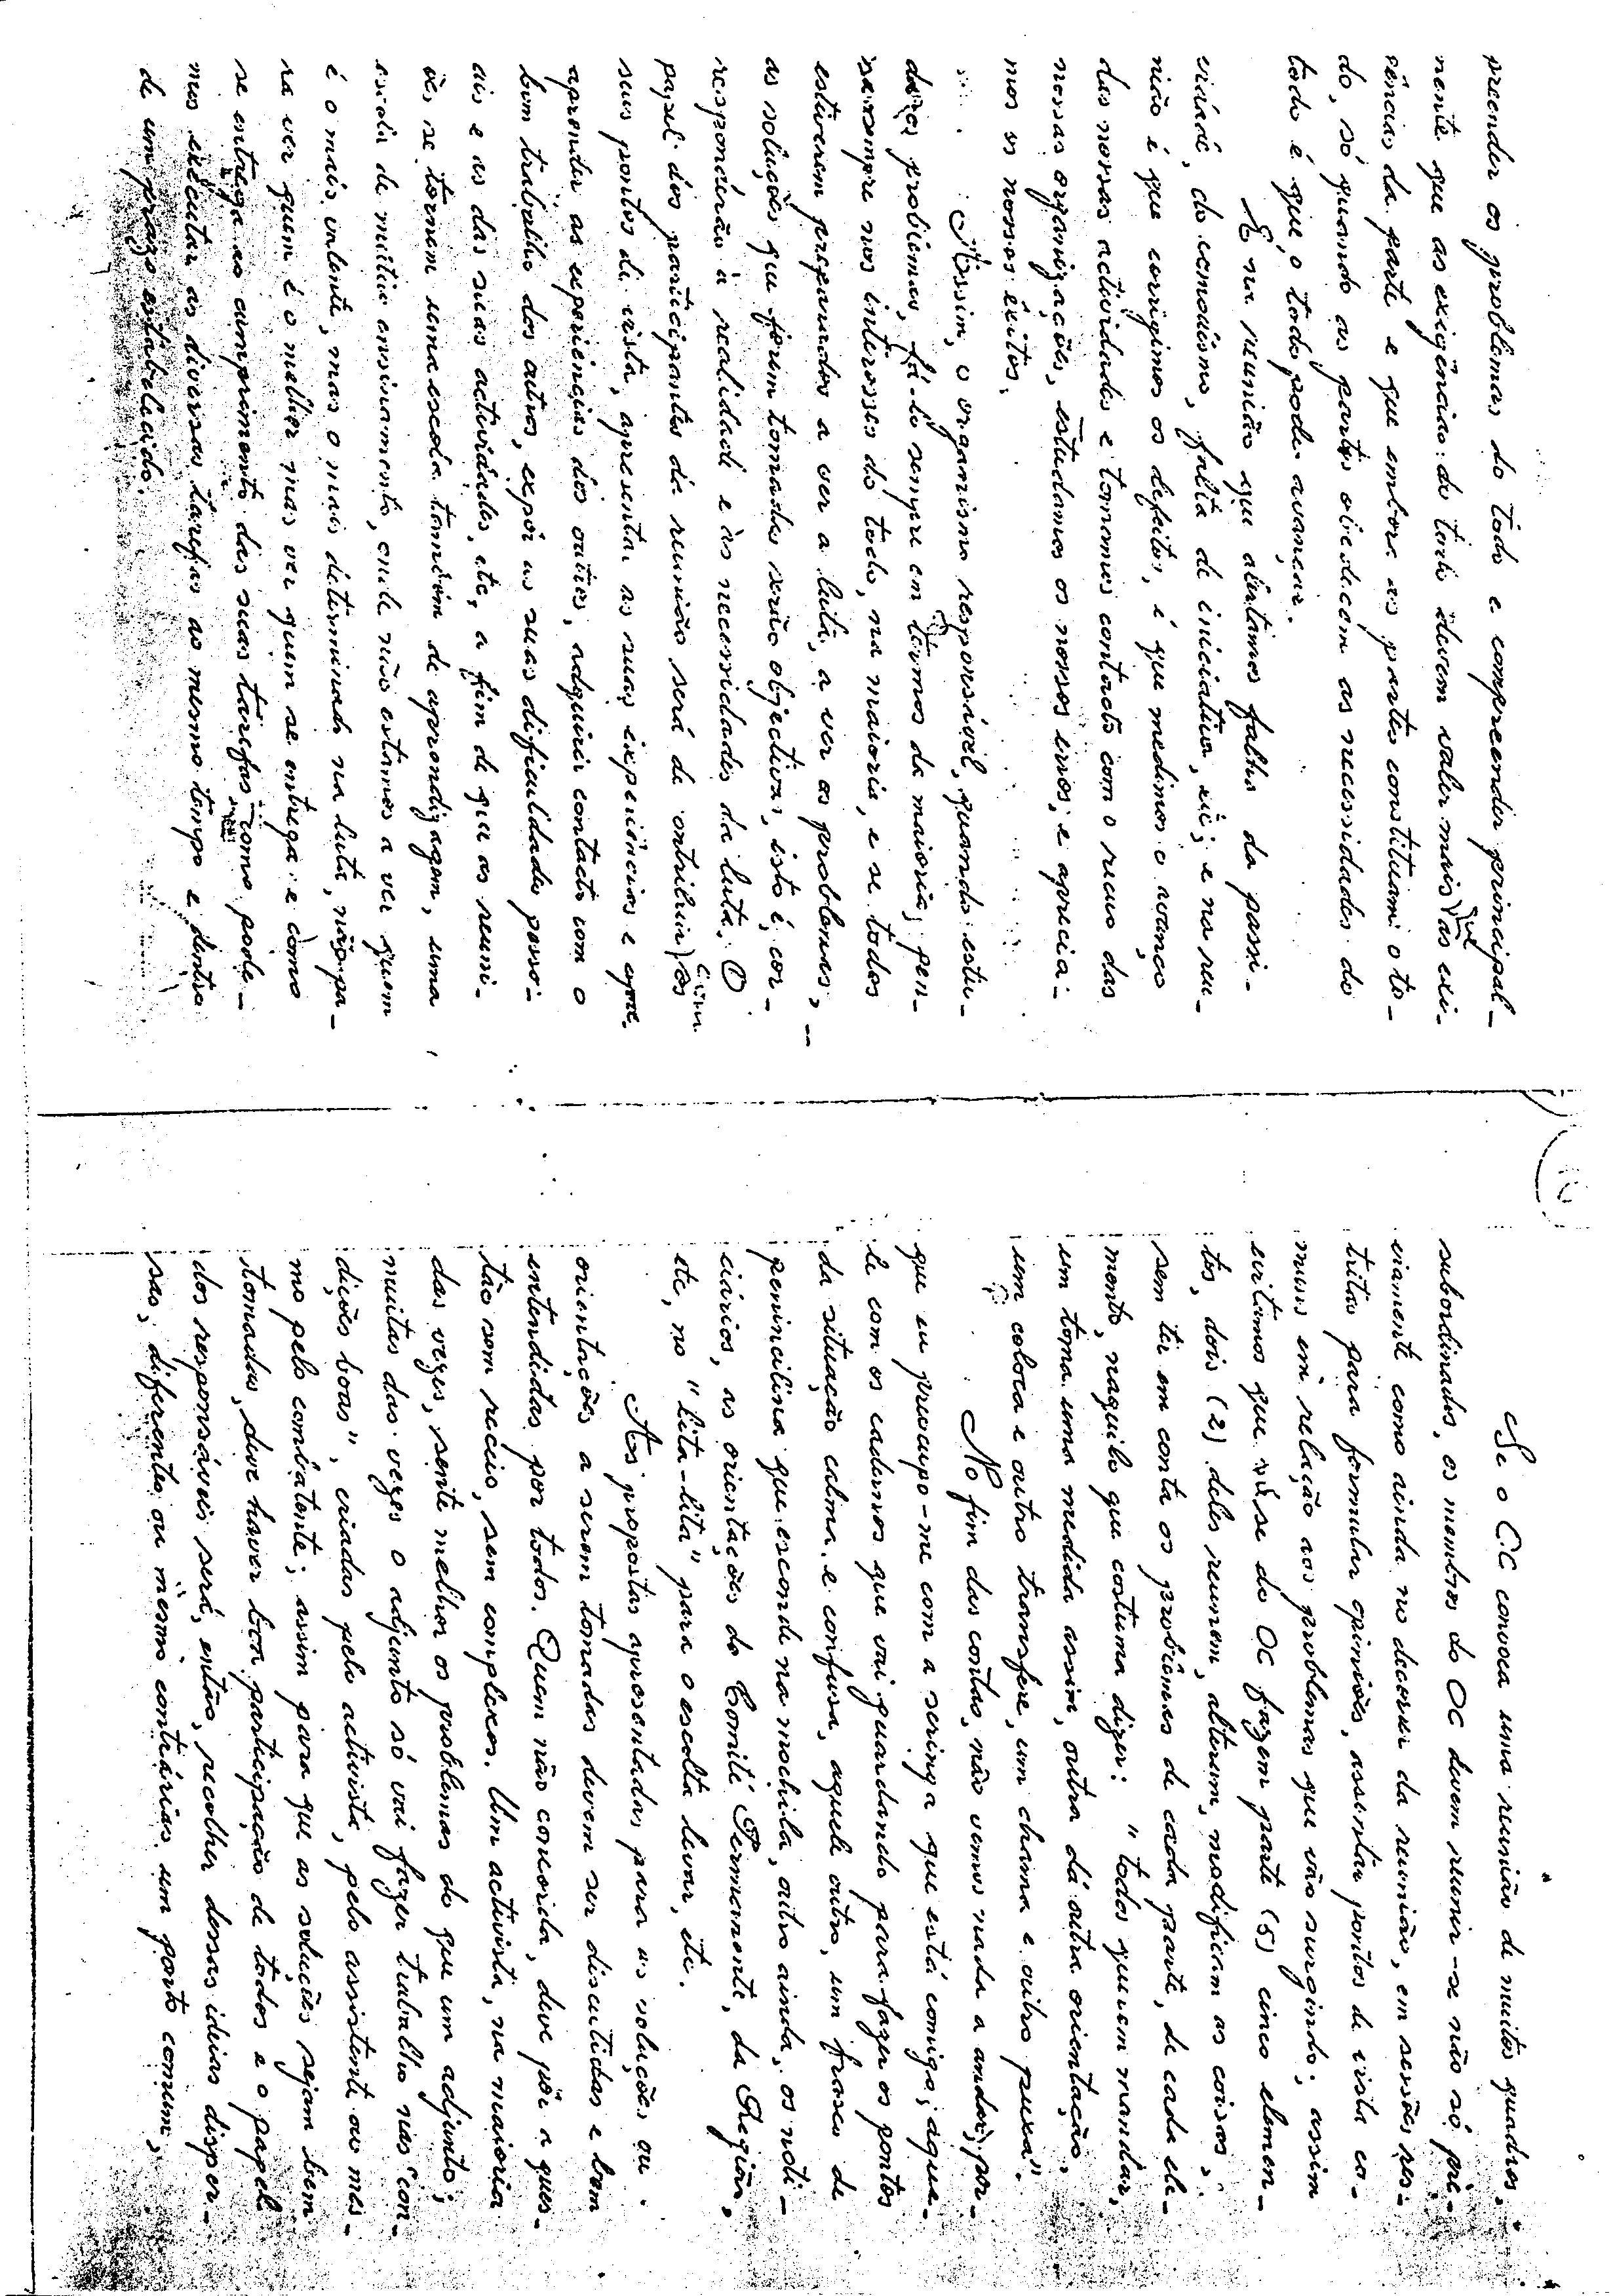 preender os problemas do todo e compreender principal-
mente que as exigências do todo devem valer mais que as exi-
gências da parte e que embora as partes constituam o to-
do, só quando as partes obedecem as necessidades do
todo é que o todo pode avançar.
E na reunião que detectamos falhas da passi-
vidade, do comodismo, falta de iniciativa, etc; e na reu-
nião é que corrigimos os defeitos, é que medimos o avanço
das nossas actividades e tomamos contacto com o recuo das
nossas organizações, estudamos os nossos erros, e aprecia-
mos os nossos êxitos.
Assim, o organismo responsável, quando estu-
da os problemas, fá-lo sempre em termos da maioria; pen-
sa sempre nos interesses do todo, na maioria, e se todos
estiverem preparados a ver a luta, a ver os problemas,
as soluções que forem tomadas serão objectivas, isto é, cor-
responderão à realidade e às necessidades da luta. O
papel dos participantes da reunião será de contribuir com os
seus pontos de vista, apresentar as suas experiências e
aprender as experiências dos outros, adquirir contacto com o
bom trabalho dos outros, expôr as suas dificuldades pesso-
ais e as das suas actividades, etc, a fim de que as reuni-
ões se tornem uma escola também de aprendizagem, uma
escola de mútuo ensinamento, onde não estamos a ver quem
é o mais valente, mas o mais determinado na luta, não pa-
ra ver quem é o melhor mas ver quem se entrega e como
se entrega ao cumprimento das suas tarefas, como pode-
mos executar as diversas tarefas ao mesmo tempo e dentro
de um prazo estabelecido.
Se o CC convoca uma reunião de muitos quadros,
subordinados, os membros do OC devem reunir-se não só pré-
viamente como ainda no decorrer da reunião, em sessões res-
tritas para formular opiniões, assentar pontos de vista co-
muns em relação aos problemas que vão surgindo; assim
evitamos que se do OC fazem parte (5) cinco elemen-
tos, dois (2) deles reunem, alteram, modificam as coisas,
sem ter em conta os problemas de cada parte, de cada ele-
mento, naquilo que costuma dizer: "todos querem mandar,
um toma uma medida assim, outra dá outra orientação,
um coloca e outro transfere, um chama e outro puxa".
No fim das contas, não vemos nada a andar, por-
que eu preocupo-me com a seringa que está comigo; aque-
le com os cadernos que vai guardando para fazer os pontos
da situação calma e confusa, aquele outro, um frasco de
penincilina que esconde na mochila, outro ainda, os noti-
ciários, as orientações do Comité Permanente, da Região,
etc, no "bita-bita" para o escolta levar, etc.
As propostas apresentadas para as soluções ou
orientações a serem tomadas devem ser discutidas e bem
entendidas por todos. Quem não concorda, deve pôr a ques-
tão sem receio, sem complexos. Um activista, na maioria
das vezes, sente melhor os problemas do que um adjunto;
muitas das vezes o adjunto só vai fazer trabalho nas "con-
dições boas", criadas pelo activista, pelo assistente ou mes-
mo pelo combatente; assim para que as soluções sejam bem
tomadas, deve haver boa participação de todos e o papel
dos responsáveis será, então, recolher dessas ideias disper-
sas, diferentes ou mesmo contrárias um ponto comum,